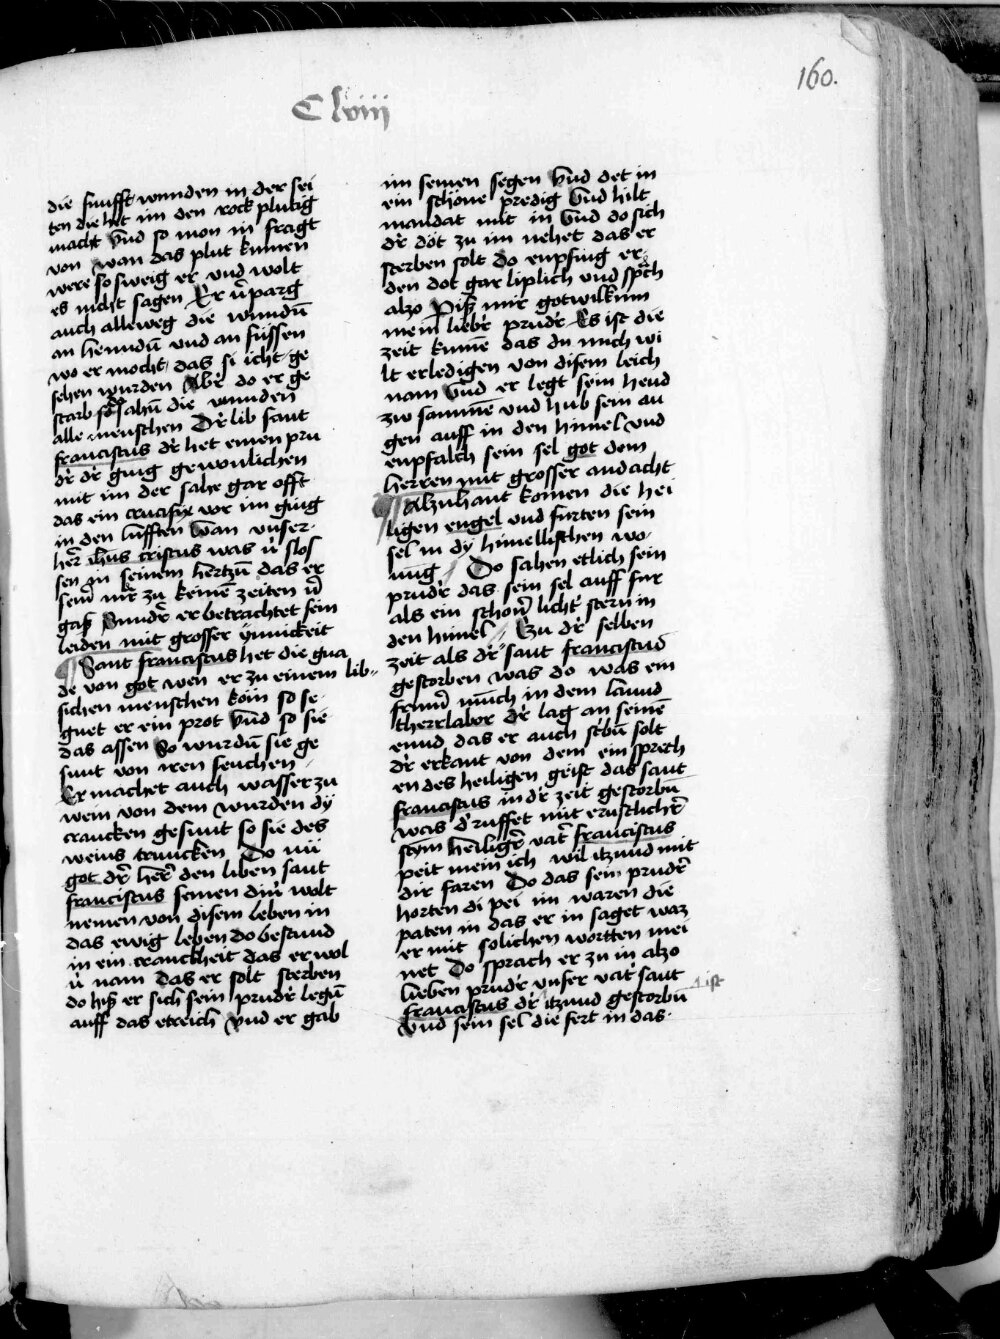 160.
C lviii
die funfft wunden in der sei
ten die het im den rock plutig
macht Vnd so mon in fragt
von wan das plut kumen
were so sweig er vnd wolt
es nicht sagen Er v̄parg
auch alleweg die wundū
an henndū vnd an füssen
wo er mocht das si icht ge
sehen wurden Abr̄ do er ge
starb so sahū die wunden
alle menschen Dr̄ lib sant
franciscus dr̄ het einen pru
dr̄ dr̄ ging gewonlichen
mit im der sahe gar offt
das ein crucifix vor im ging
in den lufften Wan vnser
her̄ ihūs cristus was v̄ slos
sen in seinem hertzū das er
sein̄ nȳr zu keinē zeiten v̄
gaß Sundr̄ er betrachtet sein
leiden mit grosser ynnickeit
Sant franciscus het die gna
de von got wen er zu einem lib-
sichen menschen kom so se
gnet er ein prot Vnd so sie
das assen So wurdū sie ge
sunt von iren seuchen
Er machet auch wasser zu
wein von dem wurden dy
crancken gesunt so sie des
weins truncken Do nū
got dr̄ her̄ den liben sant
franciscus seinen din̄ wolt
nemen von disem leben in
das ewig leben do bestund
in ein kranckheit das er wol
v̄ nam das er solt sterben
do hiß er sich sein prudr̄ legū
auff das etreich Vnd er gab
im seinen segen Vnd det in
ein schöne predig Vnd hilt
mandat mit in Vnd do sich
dr̄ dot zu im nehet das er
sterben solt Do enpfing er
den dot gar liplich vnd spch
alzo Piß mir gotwilkum
mein liebr̄ prudr̄ Es ist die
zeit kumē das du mich wi
lt erledigen von disem leich
nam Vnd er legt sein hend
zu sammē vnd hub sein au
gen auff in den himel vnd
enpfalch sein sel got dem
herren mit grosser andacht
Alzuhant komen die hei
ligen engel vnd furten sein
sel in dy himellischen wo
nūg Do sahen etlich sein
prudr̄ das sein sel auff fur
als ein schon̄ lichtr̄ stern in
den himel Zu dr̄ selben
zeit als dr̄ sant franciscus
gestorben was do was ein
frum̄ munch in dem lannd
therrlabor dr̄ lag an seinē
ennd das er auch st̄bū solt
dr̄ erkant von dem ein sprech
en des heiligen geist das sant
franciscus in dr̄ zeit gestorbū
was d̄r ruffet mit ernstlichr̄
stym heiligr̄ vatr̄ franciscus
peit mein ich wil itzund mit
dir faren Do das sein prudr̄
horten di pei im waren die
paten in das er in saget waz
er mit solichen wortten mei
net Do sprach er zu in alzo
lieben prudr̄ vnser vatr̄ sant
franciscus dr̄ itzund gestorbū
ist
Vnd sein sel die fert in das